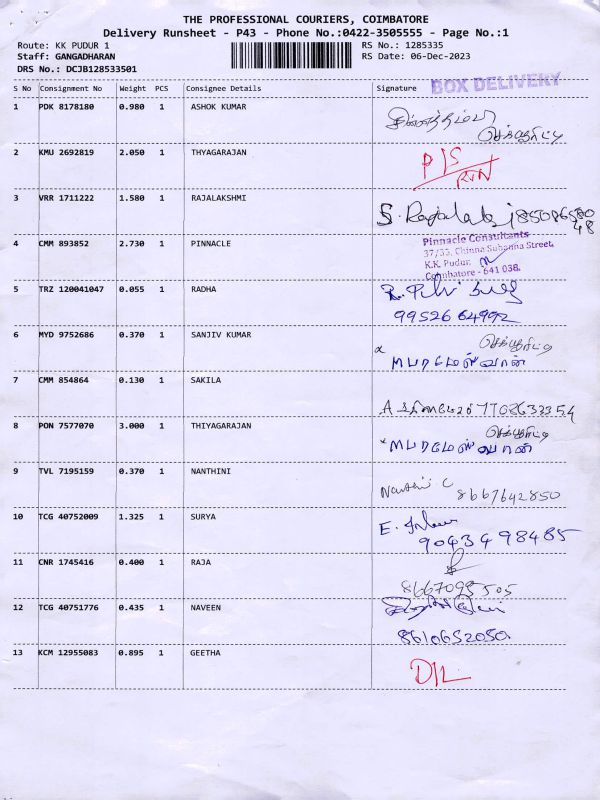 THE PROFESSIONAL COURIERS, COIMBATORE
Delivery Runsheet - P43 - Phone No.:0422-3505555 - Page No.:1
Route: KK PUDUR 1 RS No.: 1285335
Staff: GANGADHARAN RS Date: 06-Dec-2023
DRS No.: DCJB128533501
BOX DELIVERY
S No Consignment No Weight PCS Consignee Details Signature
1 PDK 8178180 0.980 1 ASHOK KUMAR
செக்யூரிட்டி
2 KMU 2692819 2.050 1 THYAGARAJAN P/S
3 VRR 1711222 1.580 1 RAJALAKSHMI S. Rajalak
4 CMM 893852 2.730 1 PINNACLE Pinnacle Consultants
37/33, Chinna Subanna Street,
K.K. Pudur,
Coimbatore - 641 038.
5 TRZ 120041047 0.055 1 RADHA
9952664992
6 MYD 9752686 0.370 1 SANJIV KUMAR செக்யூரிட்டி
M பரமேஸ்வரன்
7 CMM 854864 0.130 1 SAKILA
8 PON 7577070 3.000 1 THIYAGARAJAN செக்யூரிட்டி
M பரமேஸ்வரன்
9 TVL 7195159 0.370 1 NANTHINI Nanthini C
8667642850
10 TCG 40752009 1.325 1 SURYA E.
9043498485
11 CNR 1745416 0.400 1 RAJA
8667095505
12 TCG 40751776 0.435 1 NAVEEN
8610652050
13 KCM 12955083 0.895 1 GEETHA D/L